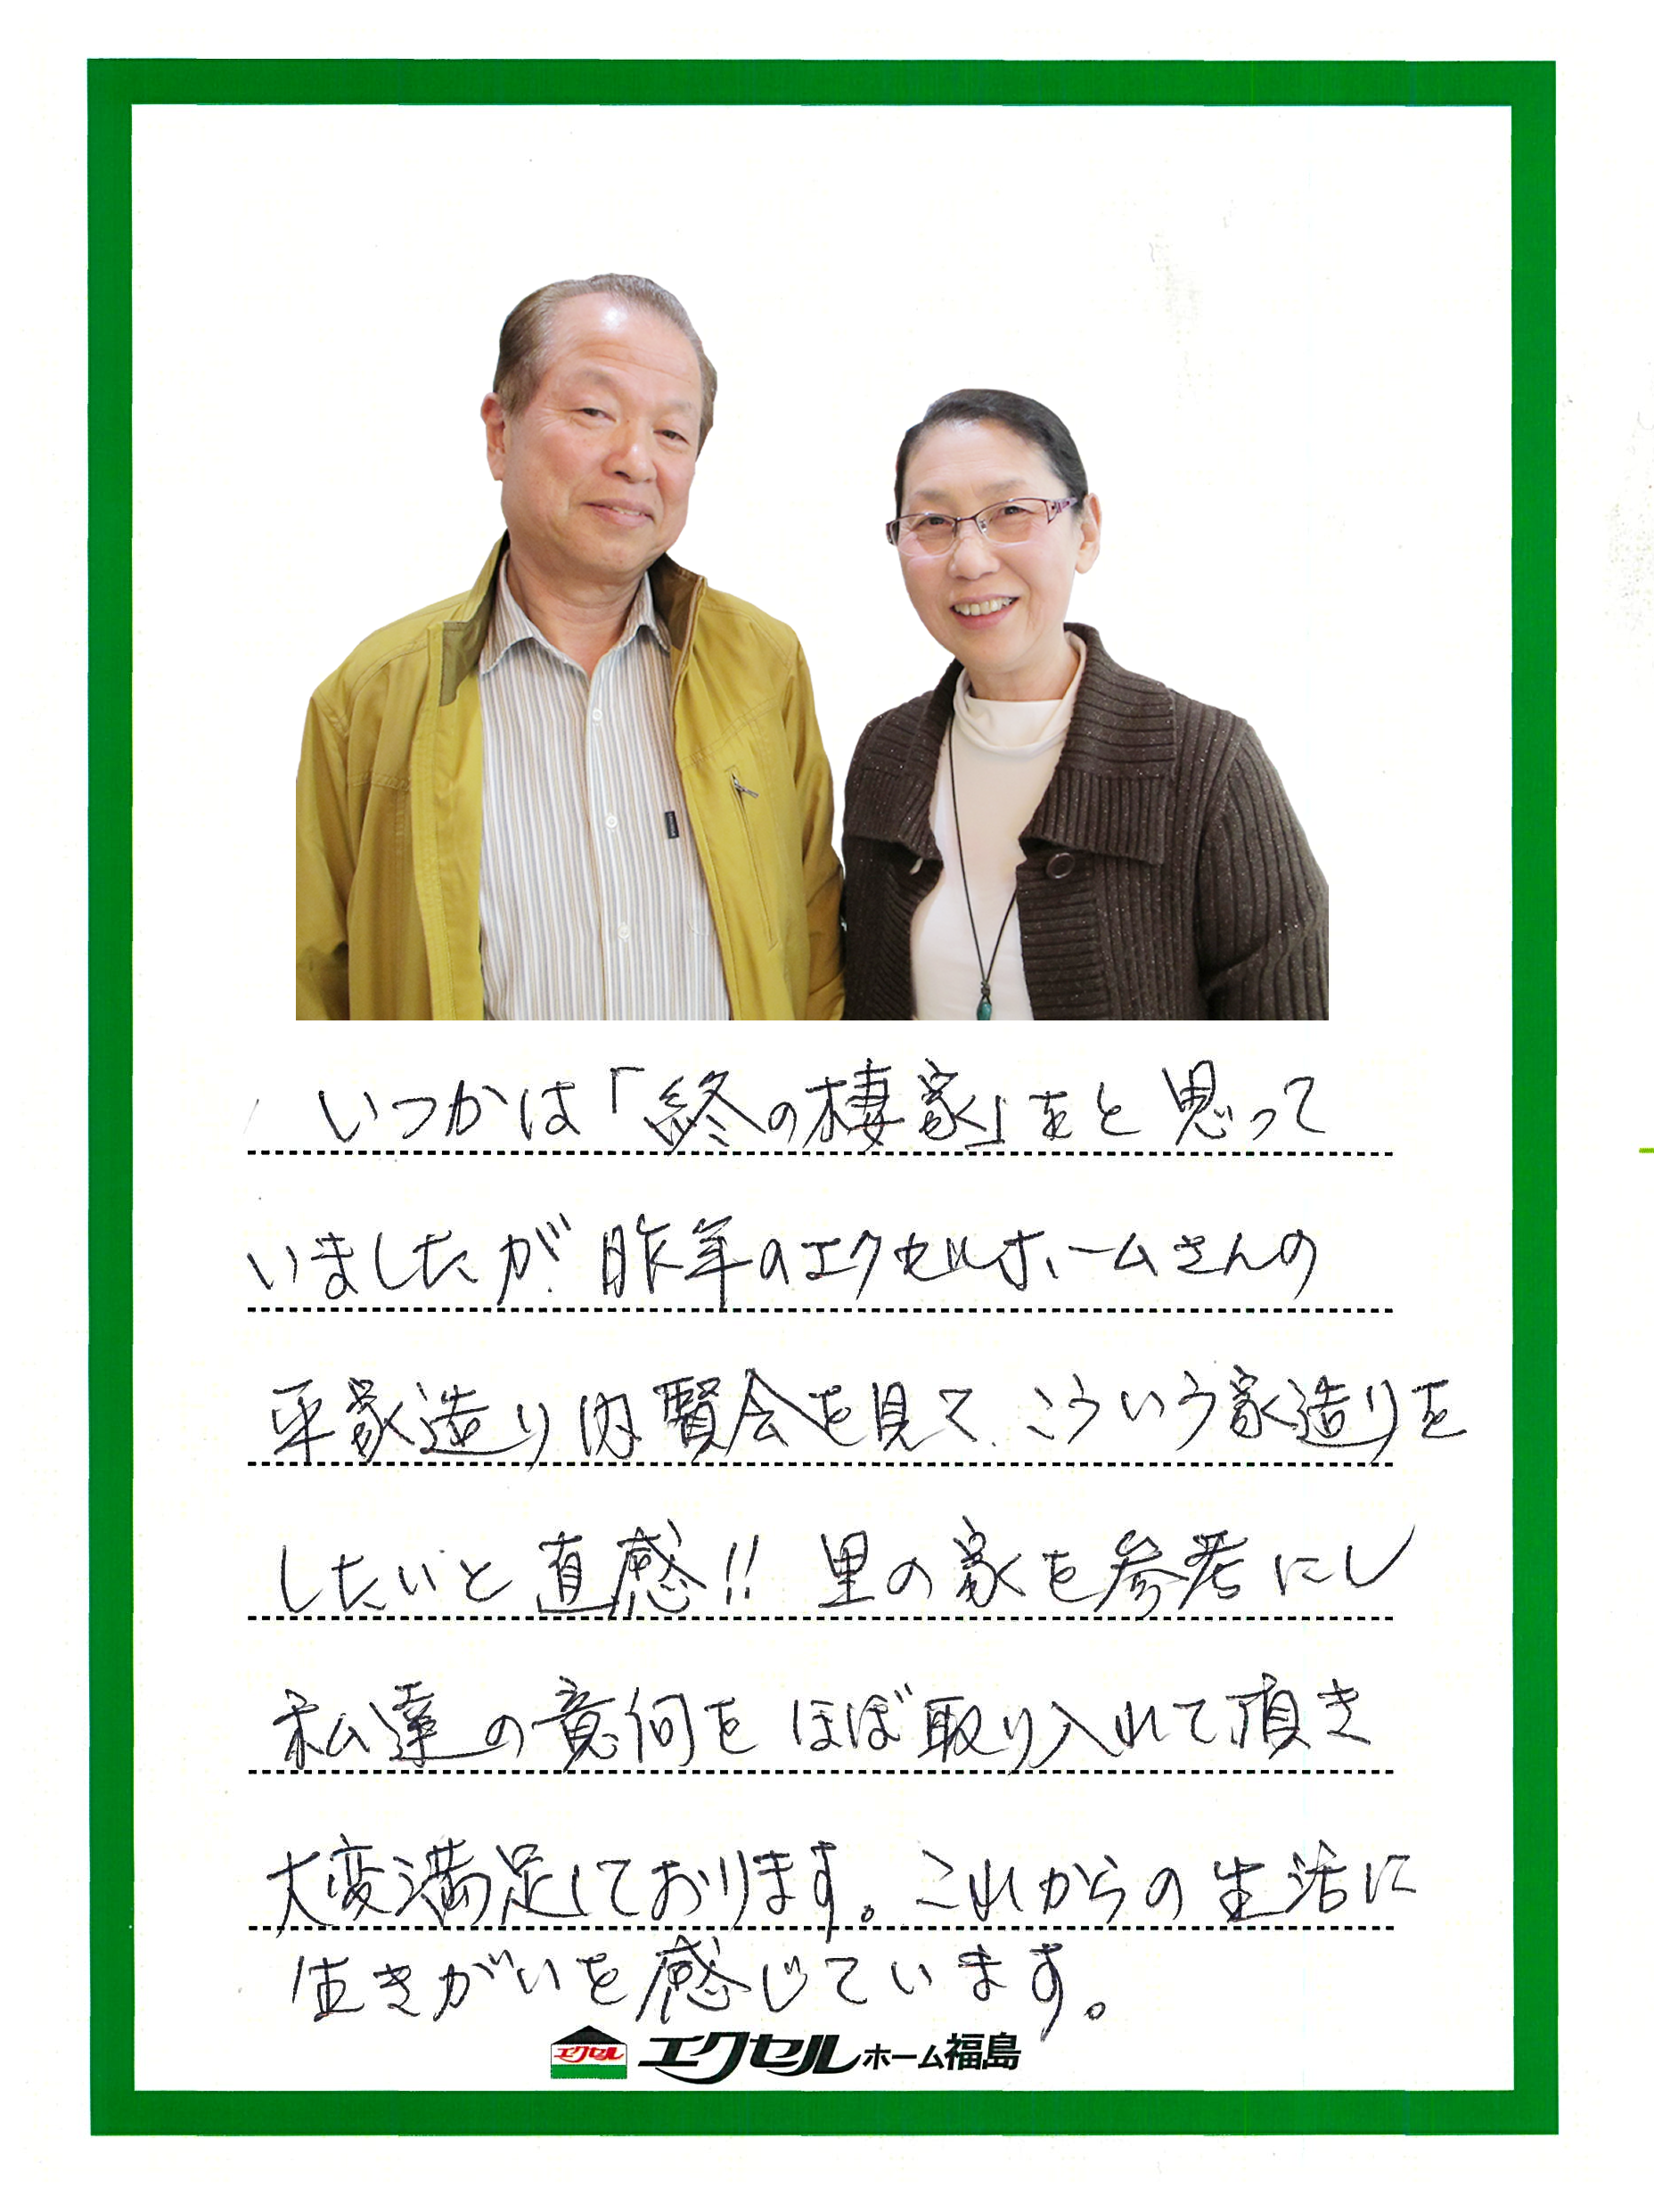 いつかは「終の棲家」をと思って
いましたが、昨年のエクセルホームさんの
平家造り内覧会を見て、こういう家造りを
したいと直感!! 里の家を参考にし
私達の意向をほぼ取り入れて頂き
大変満足しております。これからの生活に
生きがいを感じています。
エクセル エクセルホーム福島